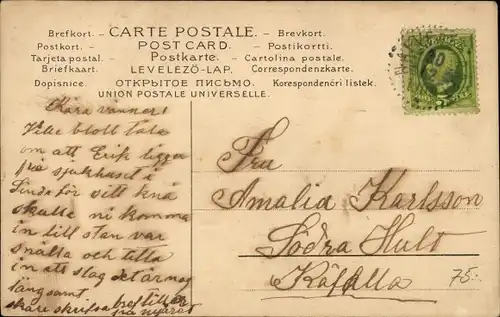 Brefkort. — CARTE POSTALE. — Brevkort.
Postkort. — POST CARD. — Postikortti.
Tarjeta postal. — Postkarte. — Cartolina postale.
Briefkaart. — LEVELEZÖ-LAP. — Correspondenzkarte.
Dopisnice. — ОТКРЫТОЕ ПИСЬМО. — Korespondenčri listek.
UNION POSTALE UNIVERSELLE.
Kära vänner!
Ville blott tala
om att Erik ligger
på sjukhuset i
Linde för sitt knä
skulle ni komma
in till stan var
snälla och titta
in att slag det är nog
långsamt
skare skrifva bref till er
på nyåret
Fru
Amalia Karlsson
Södra Hult
Råfalla
75:-